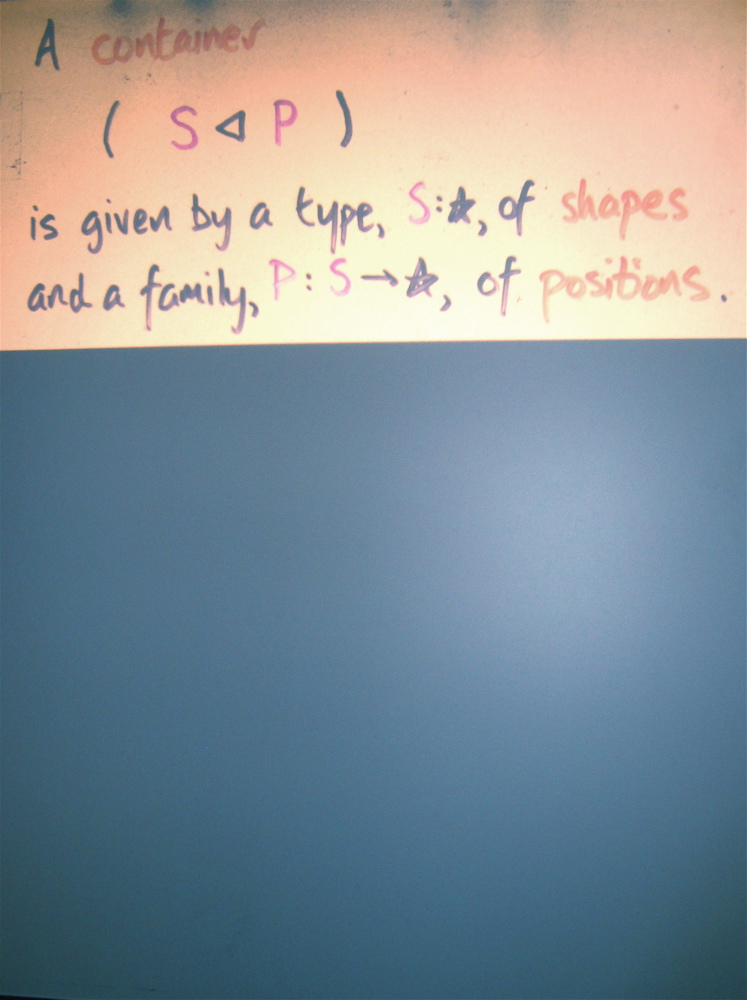 A container
( S ◁ P )
is given by a type, S:★, of shapes
and a family, P: S→★, of positions.